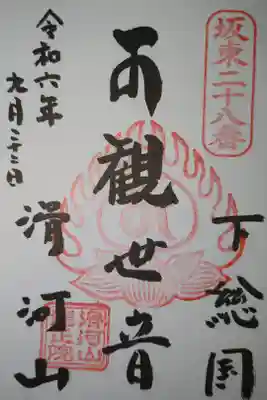 坂東二十八番
下総国
観世音
令和六年
九月二十二日
滑河山
滑河山
龍正院